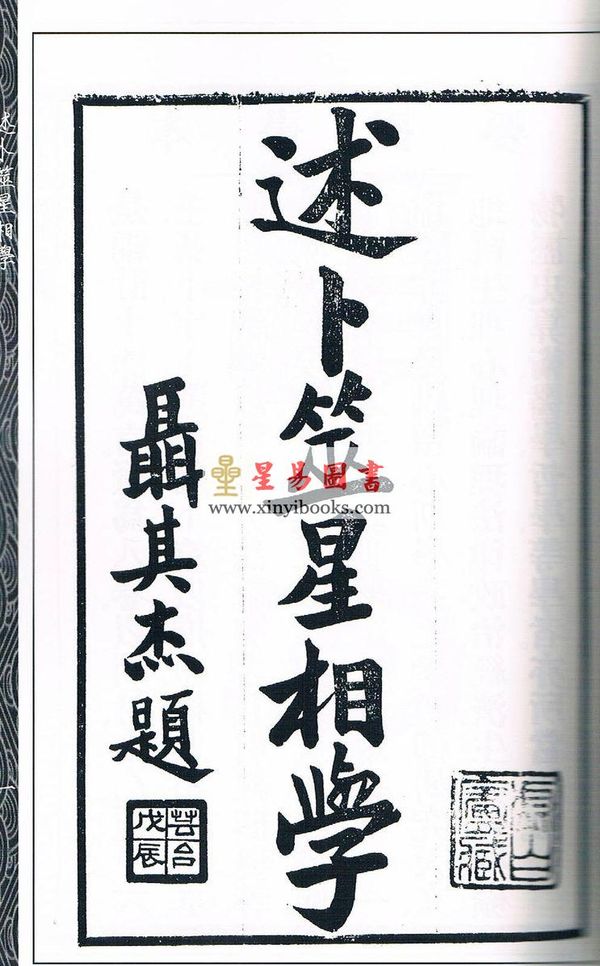 述卜筮星相學
聶其杰題
芸台
戊辰
星易圖書
www.xinyibooks.com
述卜筮星相學
一